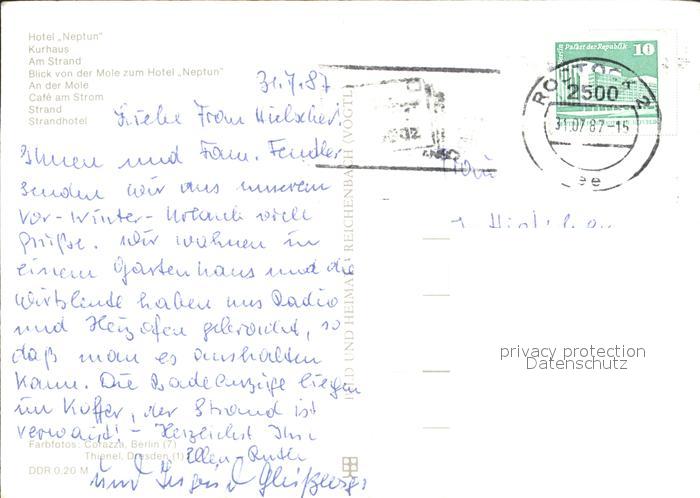 Hotel „Neptun"
Kurhaus
Am Strand
Blick von der Mole zum Hotel „Neptun"
An der Mole
Café am Strom
Strand
Strandhotel
31.7.87
Liebe Frau Hielscher
Ihnen und Fam. Fendler
senden wir aus unserem
Vor-Winter-Urlaub viele
Grüße. Wir wohnen in
einem Gartenhaus und die
Wirtsleute haben uns Radio
und Heizofen geborgt, so
daß man es aushalten
kann. Die Badeanzüge liegen
im Koffer, der Strand ist
verwaist! - Herzlichst Ihre
Ellen-Ruth
und
Farbfotos: Corazza, Berlin (7)
Thienel, Dresden (1)
DDR 0.20 M
BILD UND HEIMAT REICHENBACH (VOGTL)
Palast der Republik
10
ROSTOCK
2500
31.07.87-15
privacy protection
Datenschutz